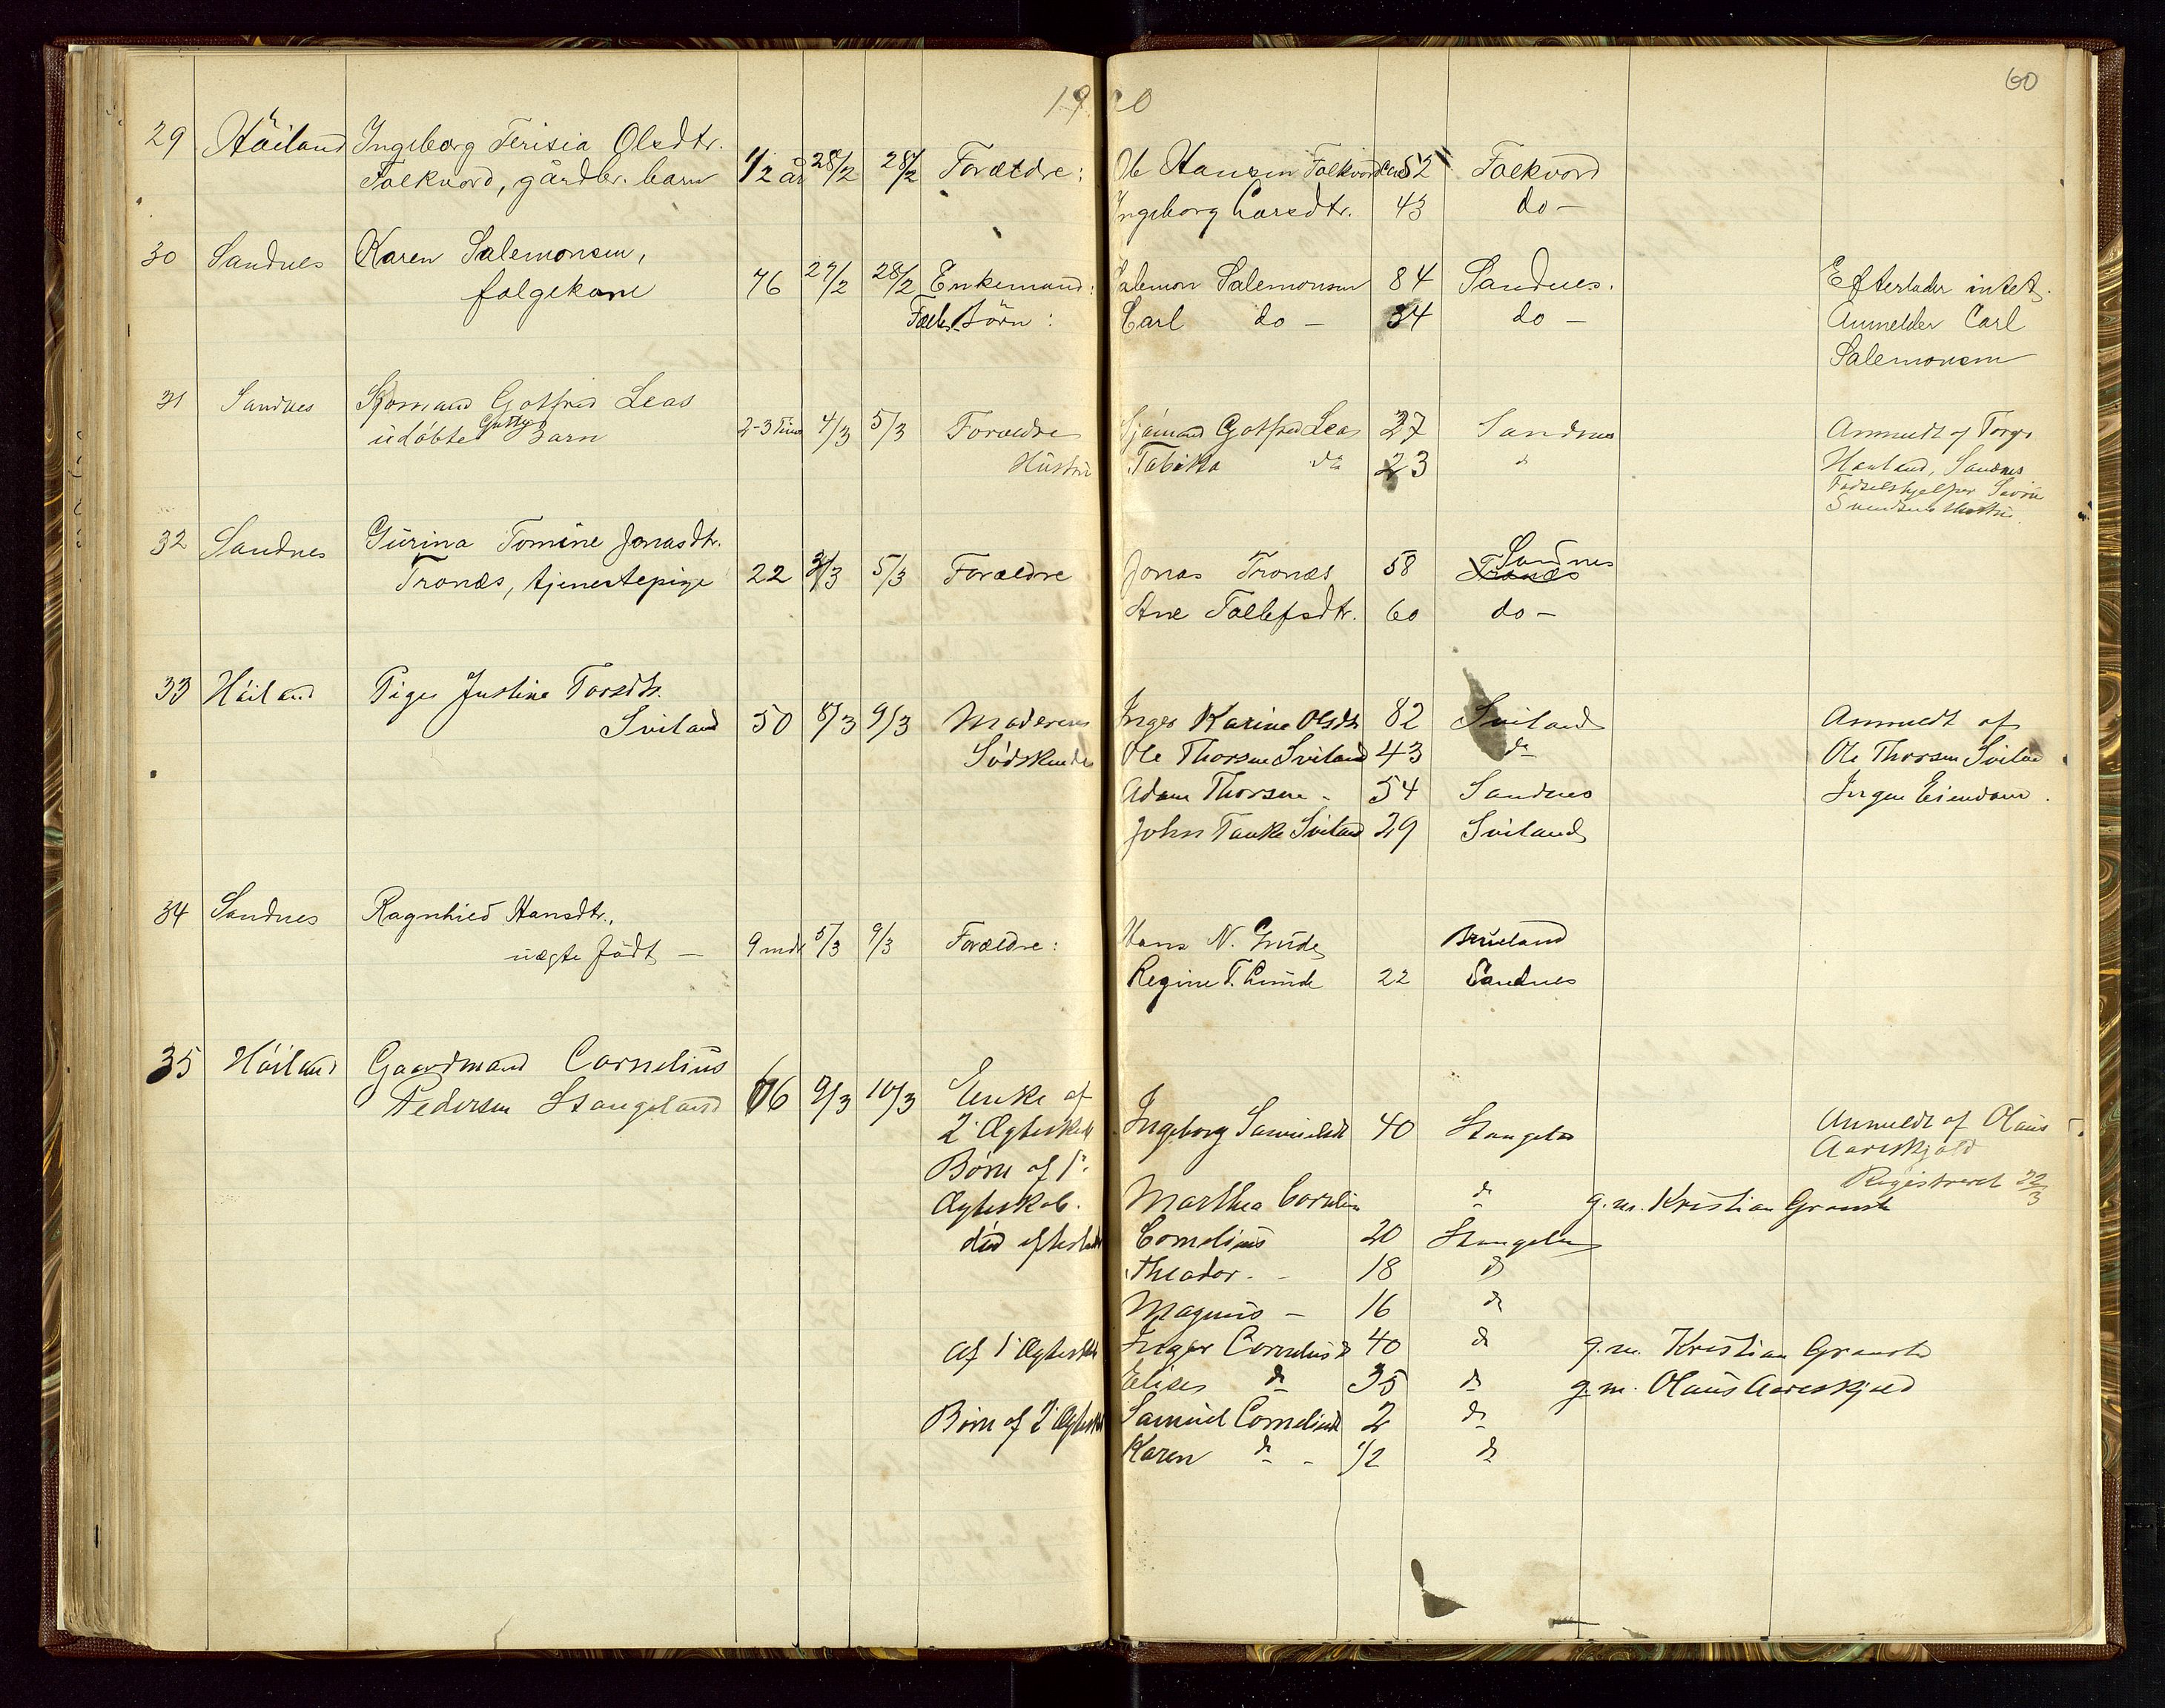 1900
60
29 Höiland Ingeborg Terisia Olsdtr.
Folkvord, gårdbr. barn 1/2 år 28/2 28/2 Forældre: Ole Hansen Folkvord 52 Folkvord
Ingeborg Larsdtr. 43 do —
30 Sandnes Karen Salemonsen,
folgekone 76 27/2 28/2 Enkemand: Salemon Salemonsen 84 Sandnes. Efterlader intet.
Børn: Carl do — 34 do — Anmelder Carl
Salemonsen
31 Sandnes Sjømand Gotfred Leas
udöbte Barn 2-3 Timer 4/3 5/3 Forældre Sjömand Gotfred Leas 27 Sandnes Anmeldt af Torger
Hustru Tabitha do 23 do Hauland, Sandnes
Fødselshjelper
Svendsens Hustru.
32 Sandnes Gurina Tomine Jonasdtr.
Tronæs, tjenestepige 22 3/3 5/3 Forældre Jonas Tronæs 58 Tronæs Sandnes
Ane Tollefsdtr. 60 do —
33 Höiland Pige Justine Torsdtr.
Sviland 50 8/3 9/3 Moderen Inger Karine Olsdtr 82 Sviland Anmeldt af
Södskende Ole Thorsen Sviland 43 do Ole Thorsen Sviland
Adam Thorsen - 54 Sandnes Ingen Eiendom.
John Tanke Sviland 29 Sviland
34 Sandnes Ragnhild Hansdtr.,
uægte födt — 9 mdr 5/3 9/3 Forældre: Hans N. Grude Brueland
Regine T. Lunde 22 Sandnes
35 Höiland Gaardmand Cornelius
Pedersen Stangeland 66 9/3 10/3 Enke af
2' Ægteskab Ingeborg Samuelsdt 40 Stangeld Anmeldt af Olaus
Børn af 1' Aareskjold
Ægteskab. Marthea Cornelia do g. m. Kristian Gramst Registreret 22/3
Cornelius 20 Stangeland
Theodor. - 18 do
Magnus - 16 do
af 1' Ægteskab Inger Corneliusd 40 do g. m. Kristian Gramst
Elise do 35 do g. m. Olaus Aareskjold
Børn af 2' Ægteskab Samuel Corneliusd 2 do
Karen do - 1/2 do